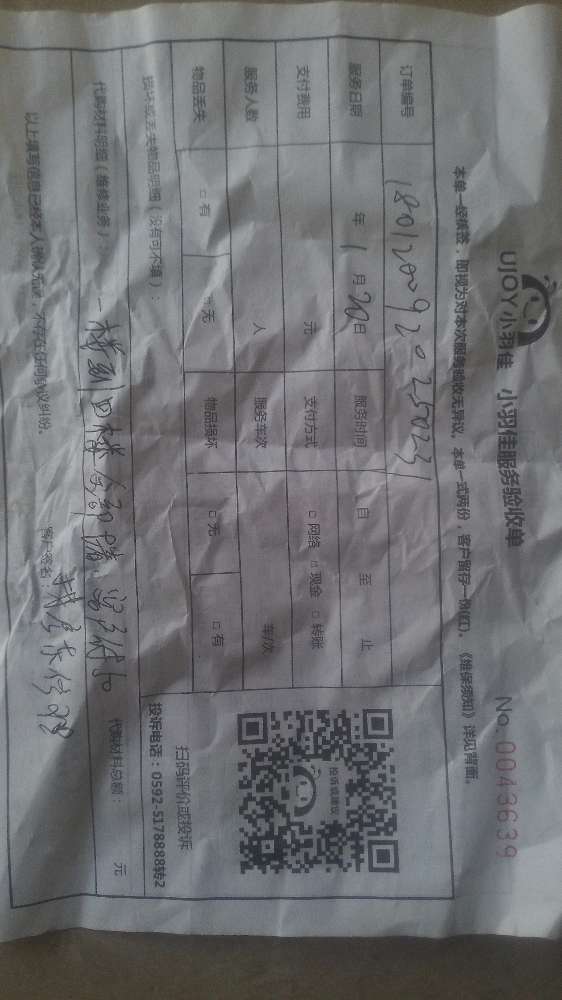 UJOY小羽佳 小羽佳服务验收单
No. 0043639
本单一经横签,即视为对本次服务验收无异议。本单一式两份,客户留存一份(红)。《维保须知》详见背面。
订单编号 1801200920250231
服务日期 年 1 月 20 日 服务时间 自 至 止
支付费用 元 支付方式 □ 网络 □ 现金 □ 转账
服务人数 人 服务车次 车/次
物品丢失 □ 有 □ 无 物品损坏 □ 无 □ 有
损坏或丢失物品明细(没有可不填):
投诉或建议
扫码评价或投诉
投诉电话:0592-5178888转2
代购材料明细(维修业务): 一楼到四楼全部堵 代购材料总额: 元
以上填写信息已经本人确认无误,不存在任何争议纠纷。 客户签名